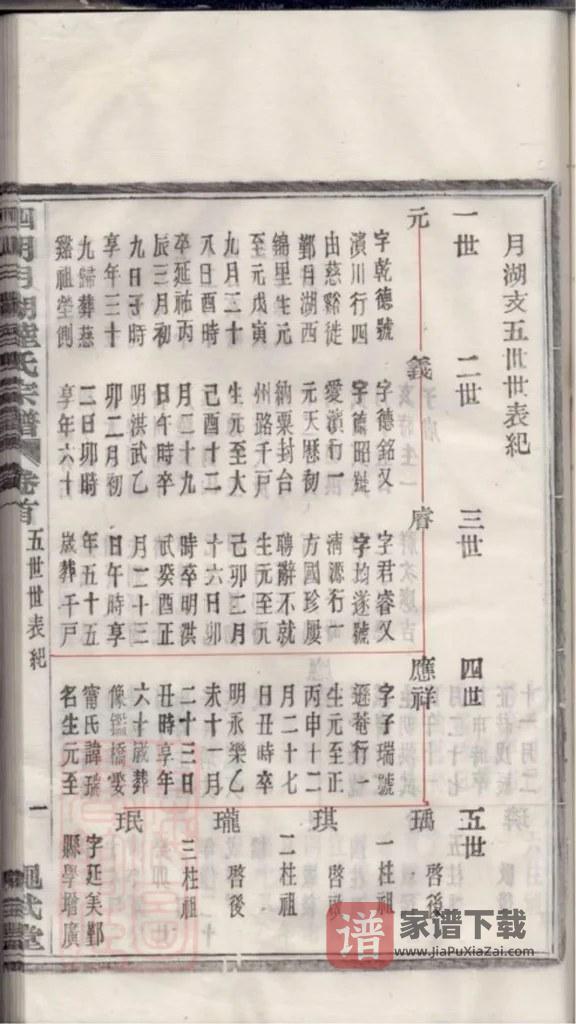 月湖支五世世表紀
一世
二世
三世
四世
五世
元
字乾德號
濱川行四
由慈谿徙
鄞月湖西
錦里生元
至元戊寅
九月二十
八日酉時
卒延祐丙
辰三月初
九日子時
享年三十
九歸葬慈
谿祖塋側
義
字德銘又
字德昭號
愛濱行一
元天曆初
納粟封台
州路千戸
生元至大
己酉十二
月二十九
日午時卒
明洪武乙
卯二月初
二日卯時
享年六十
睿
字君睿又
字均遂號
清源行一
方國珍屢
聘辭不就
生元至元
己卯二月
十六日卯
時卒明洪
武癸酉正
月二十三
日午時享
年五十五
歲葬千戸
應祥
字子瑞號
遯菴行一
生元至正
丙申十二
月二十七
日丑時卒
明永樂乙
未十一月
二十三日
丑時享年
六十歲葬
像鑑橋娶
甯氏諱瑞
名生元至
瑀
啓後
一柱祖
琪
啓後
二柱祖
瓏
啓後
三柱祖
珉
字廷美鄞
縣學增廣
四明月湖陸氏宗譜
卷首
五世世表紀
一
谱
家谱下载
www.JiaPuXiaZai.com